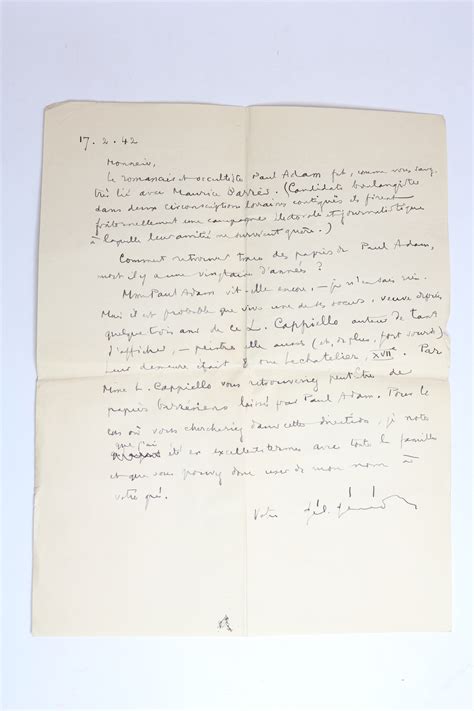 17. 2. 42
Monsieur,
Le romancier et occultiste Paul Adam fut, comme vous savez,
très lié avec Maurice Barrès. (Candidats boulangistes
dans deux circonscriptions lorraines contiguës ils firent
fraternellement une campagne électorale et journalistique
à laquelle leur amitié ne survécut guère.)
Comment retrouver trace des papiers de Paul Adam,
mort il y a une vingtaine d'années ?
Mme Paul Adam vit-elle encore, — je n'en sais rien.
Mais il est probable que vous une de ses sœurs, veuve depuis
quelque trois ans de ce L. Cappiello auteur de tant
d'affiches, — peintre elle aussi (et, de plus, fort sourde)
Leur demeure était 8 rue Lechatelier, XVIIe. Par
Mme L. Cappiello vous retrouveriez peut-être des
papiers barrésiens laissés par Paul Adam. Pour le
cas où vous chercheriez dans cette direction, je note
que j'ai
été en excellents termes avec toute la famille
et que vous pouvez donc user de mon nom à
votre gré.
Votre